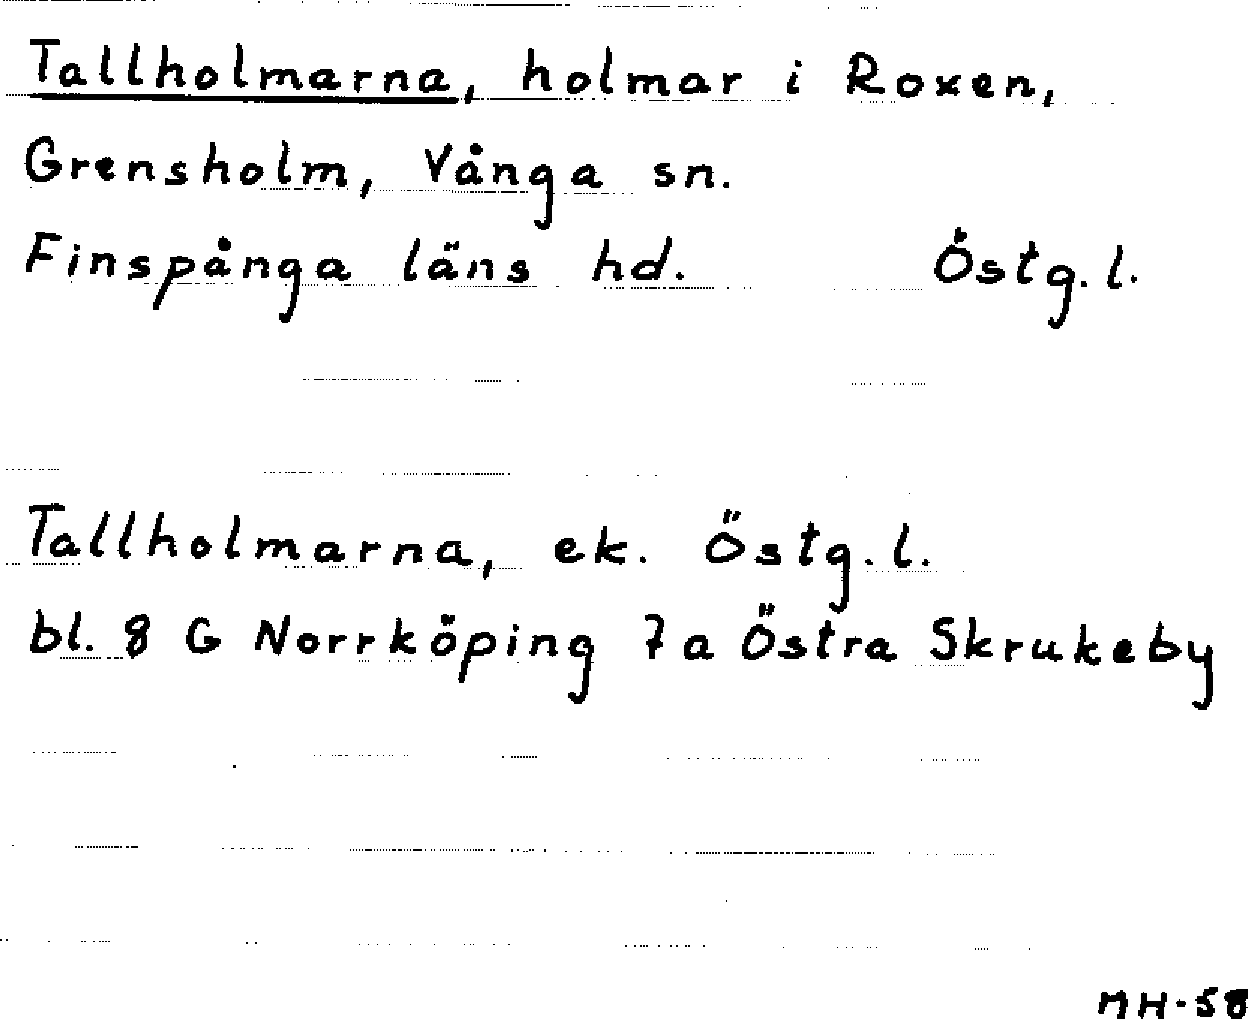 Tallholmarna, holmar i Roxen,
Grensholm, Vånga sn.
Finspånga läns hd. Östg. l.
Tallholmarna, ek. Östg. l.
bl. 8 G Norrköping 7a Östra Skrukeby
MH-58